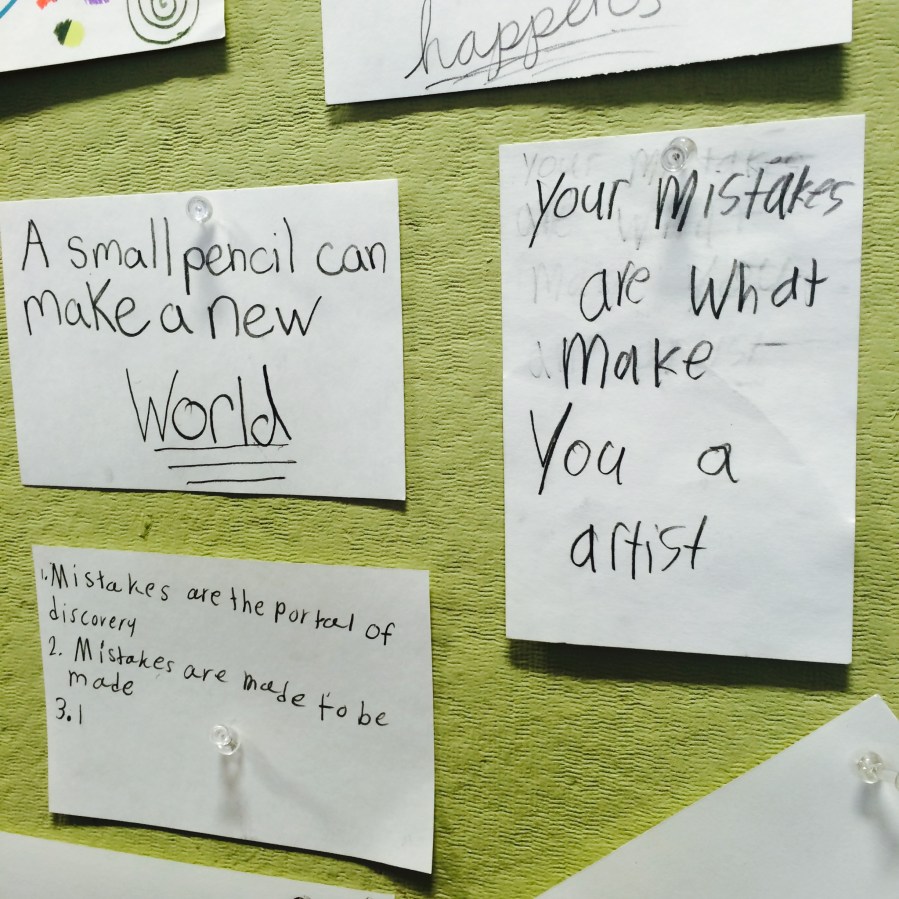 happens
A small pencil can
make a new
World
your Mistakes
are what
make
You a
artist
1. Mistakes are the portal of
discovery
2. Mistakes are made to be
made
3. 1